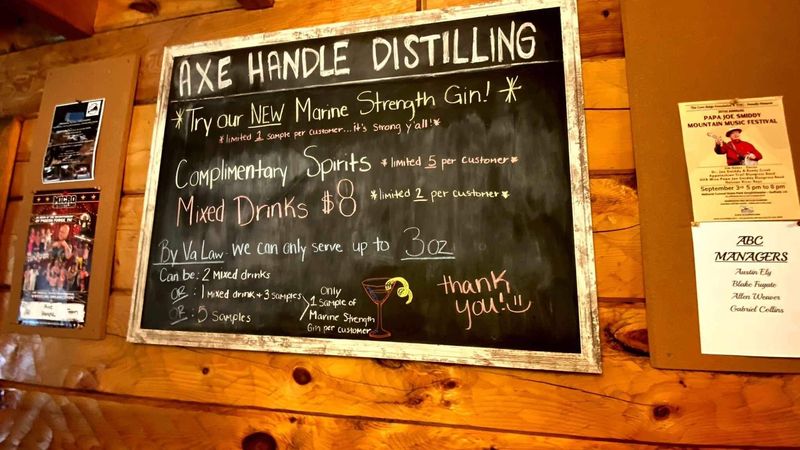 AXE HANDLE DISTILLING
*Try our NEW Marine Strength Gin!*
*limited 1 sample per customer...it's strong y'all!*
Complimentary Spirits *limited 5 per customer*
Mixed Drinks $8 *limited 2 per customer*
By Va Law we can only serve up to 3oz
Can be: 2 mixed drinks
OR: 1 mixed drink + 3 samples
OR: 5 samples
Only
1 sample of
Marine Strength
Gin per customer
thank
you!
MICRO
PAPA JOE SMIDDY
MOUNTAIN MUSIC FESTIVAL
September 3rd 5 pm to 8 pm
ABC
MANAGERS
Austin Ely
Blake Fugate
Allen Weaver
Gabriel Collins